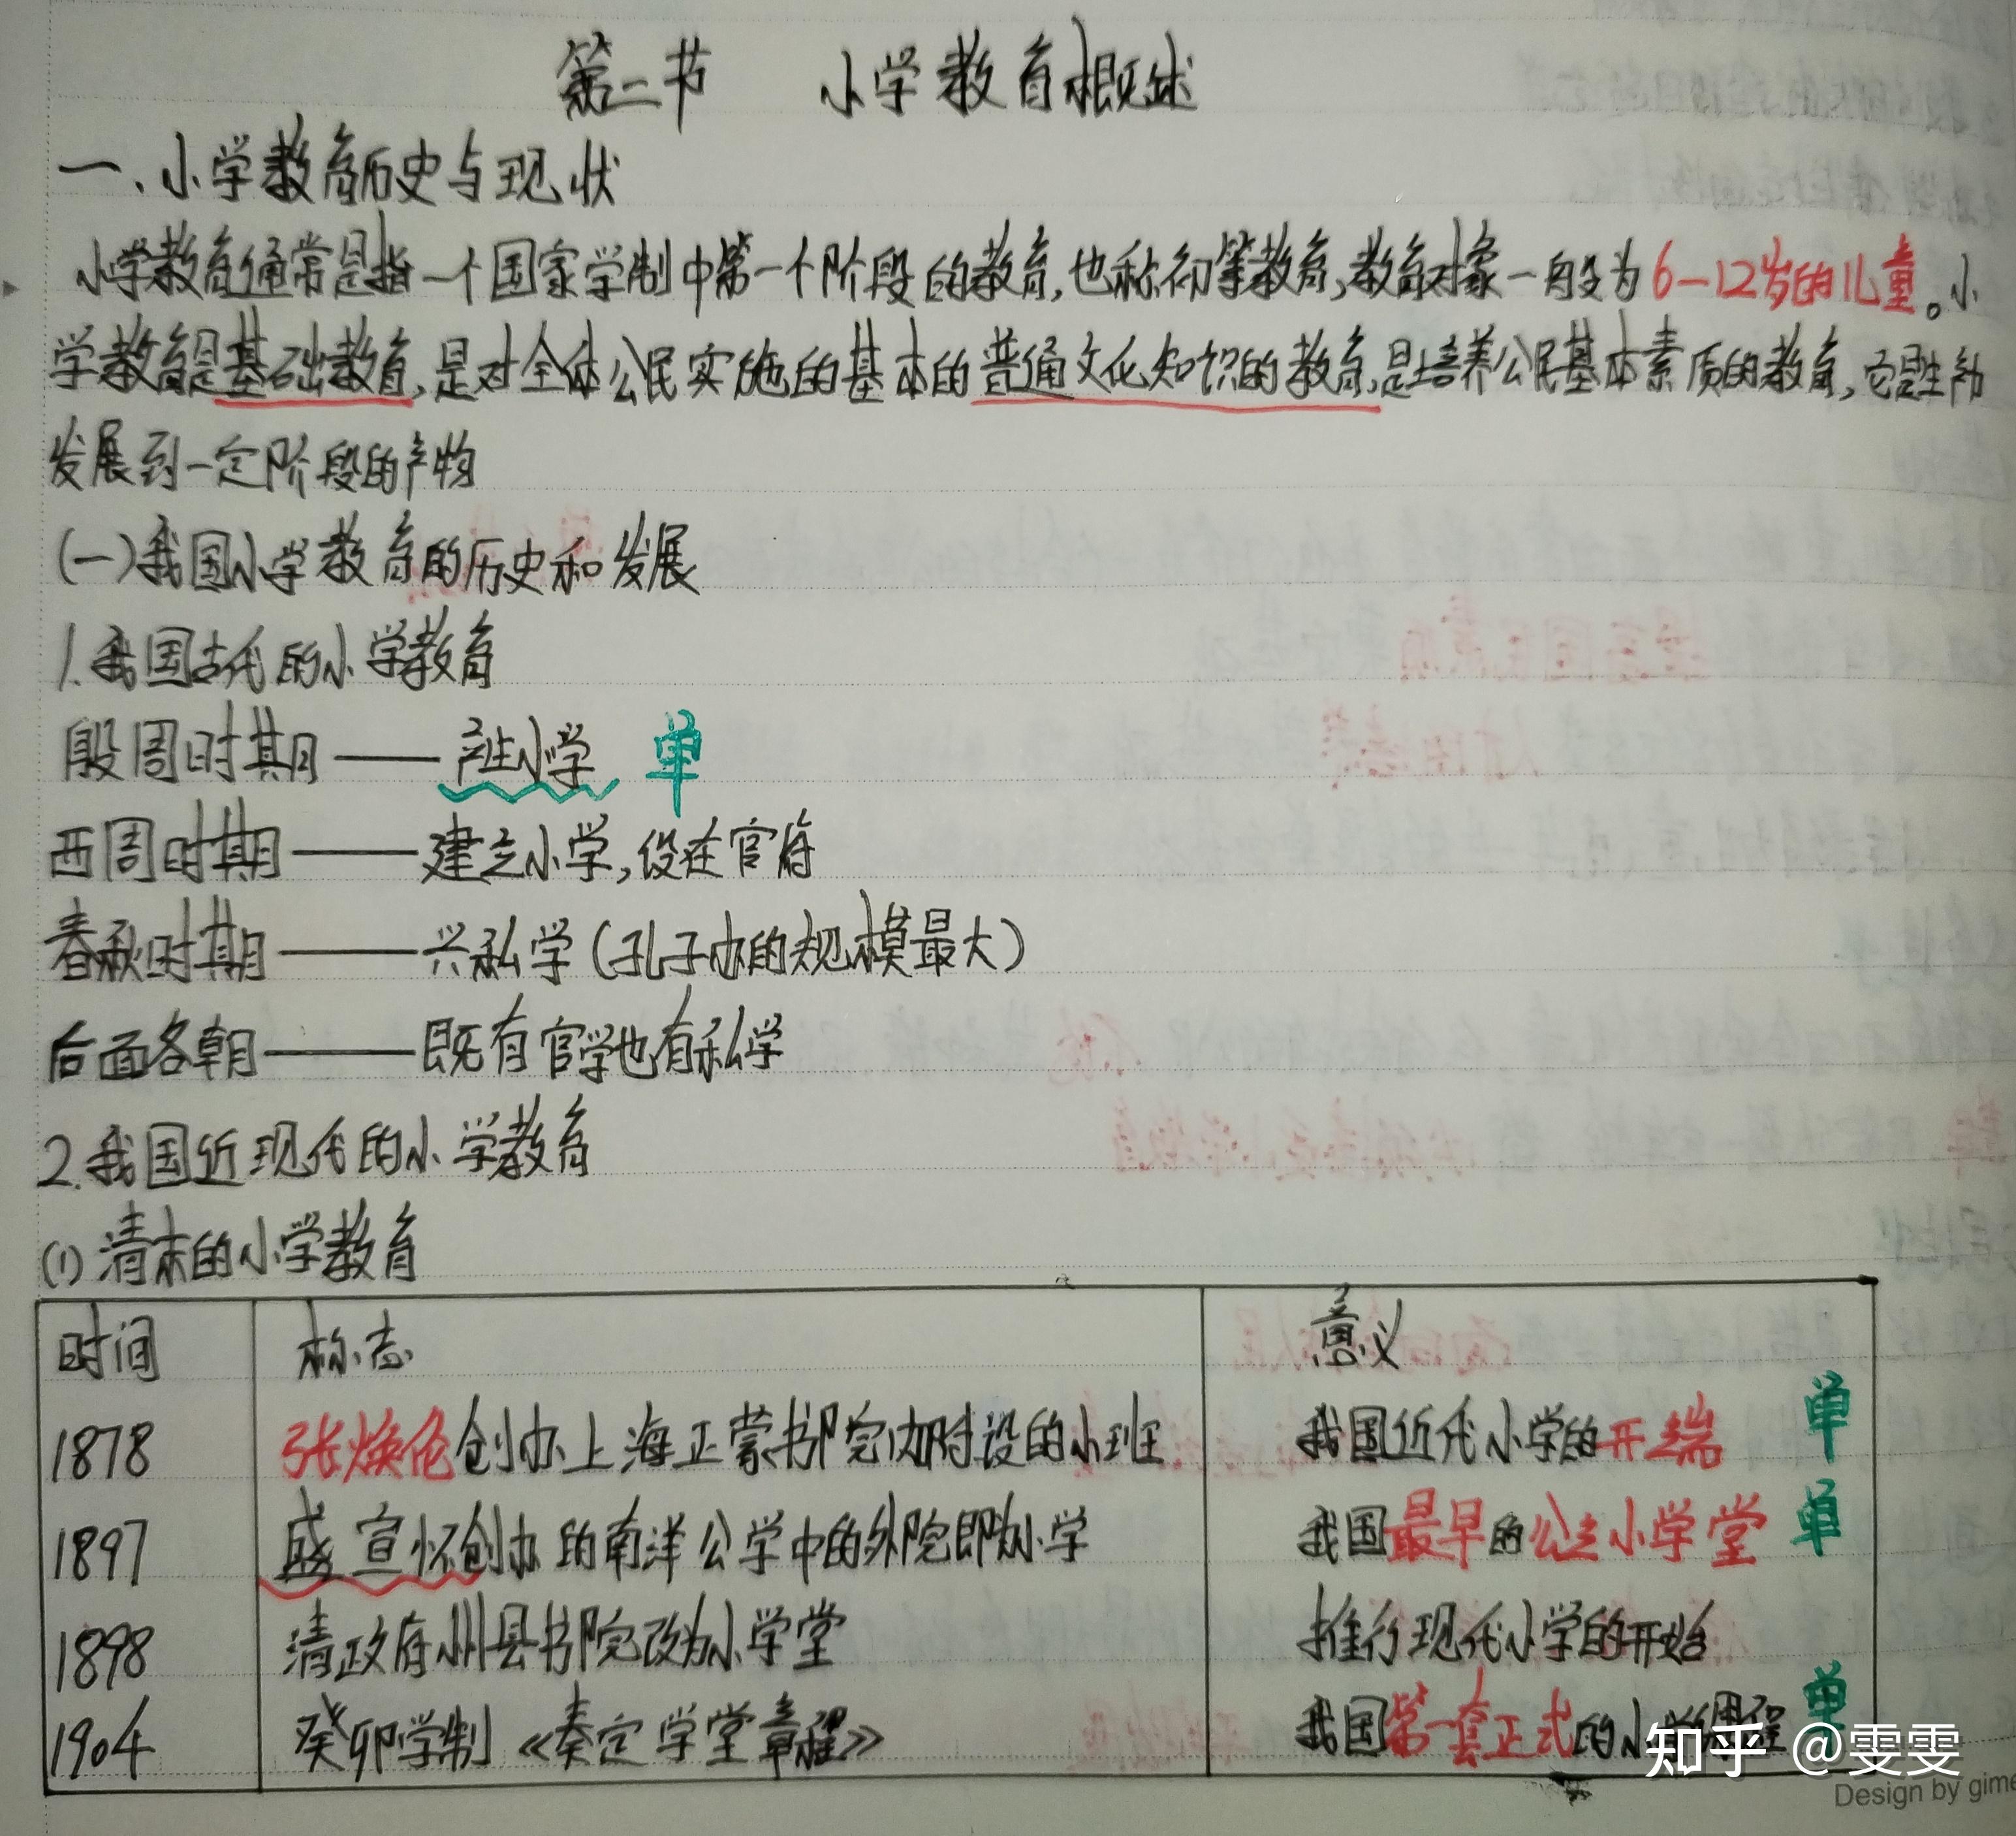 第二节 小学教育概述
一、小学教育历史与现状
小学教育通常是指一个国家学制中第一个阶段的教育,也称初等教育,教育对象一般为6—12岁的儿童。小
学教育是基础教育,是对全体公民实施的基本的普通文化知识的教育,是培养公民基本素质的教育,它是生物
发展到一定阶段的产物
(一)我国小学教育的历史和发展
1.我国古代的小学教育
殷周时期——产生小学 单
西周时期——建立小学,设在官府
春秋时期——兴私学(孔子办的规模最大)
后面各朝——既有官学也有私学
2.我国近现代的小学教育
(1)清末的小学教育
时间 标志 意义
1878 张焕伦创办上海正蒙书院内附设的小班 我国近代小学的开端 单
1897 盛宣怀创办的南洋公学中的外院即为小学 我国最早的公立小学堂 单
1898 清政府州县书院改为小学堂 推行现代小学的开始
1904 癸卯学制《奏定学堂章程》 我国第一套正式的小学 单
知乎 @雯雯
Design by gime